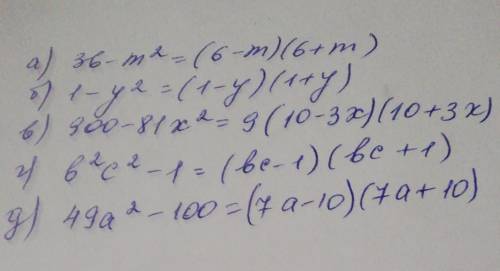 а) 36-m²=(6-m)(6+m)
б) 1-y²=(1-y)(1+y)
в) 900-81x²=9(10-3x)(10+3x)
г) b²c²-1=(bc-1)(bc+1)
д) 49a²-100=(7a-10)(7a+10)